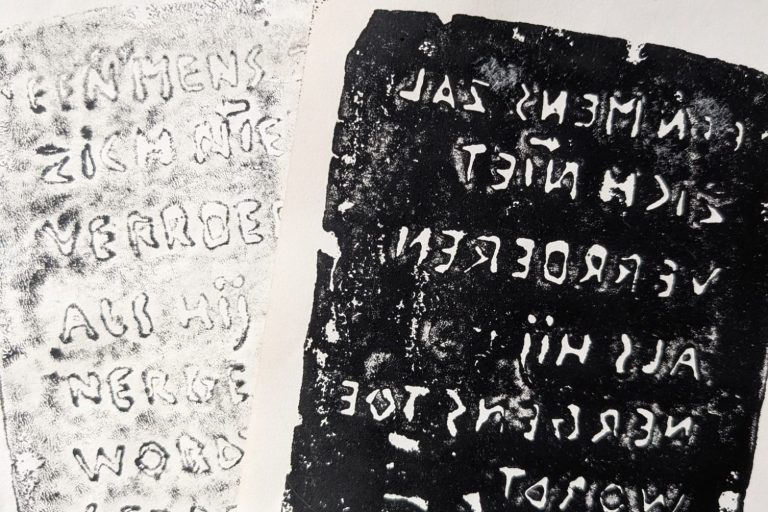 EEN MENS
ZICH NIE
VERROE
ALS HIJ
NERGE
WORD
EEN MENS ZAL
ZICH NIET
VERROEREN
ALS HIJ
NERGENS TOE
WORDT